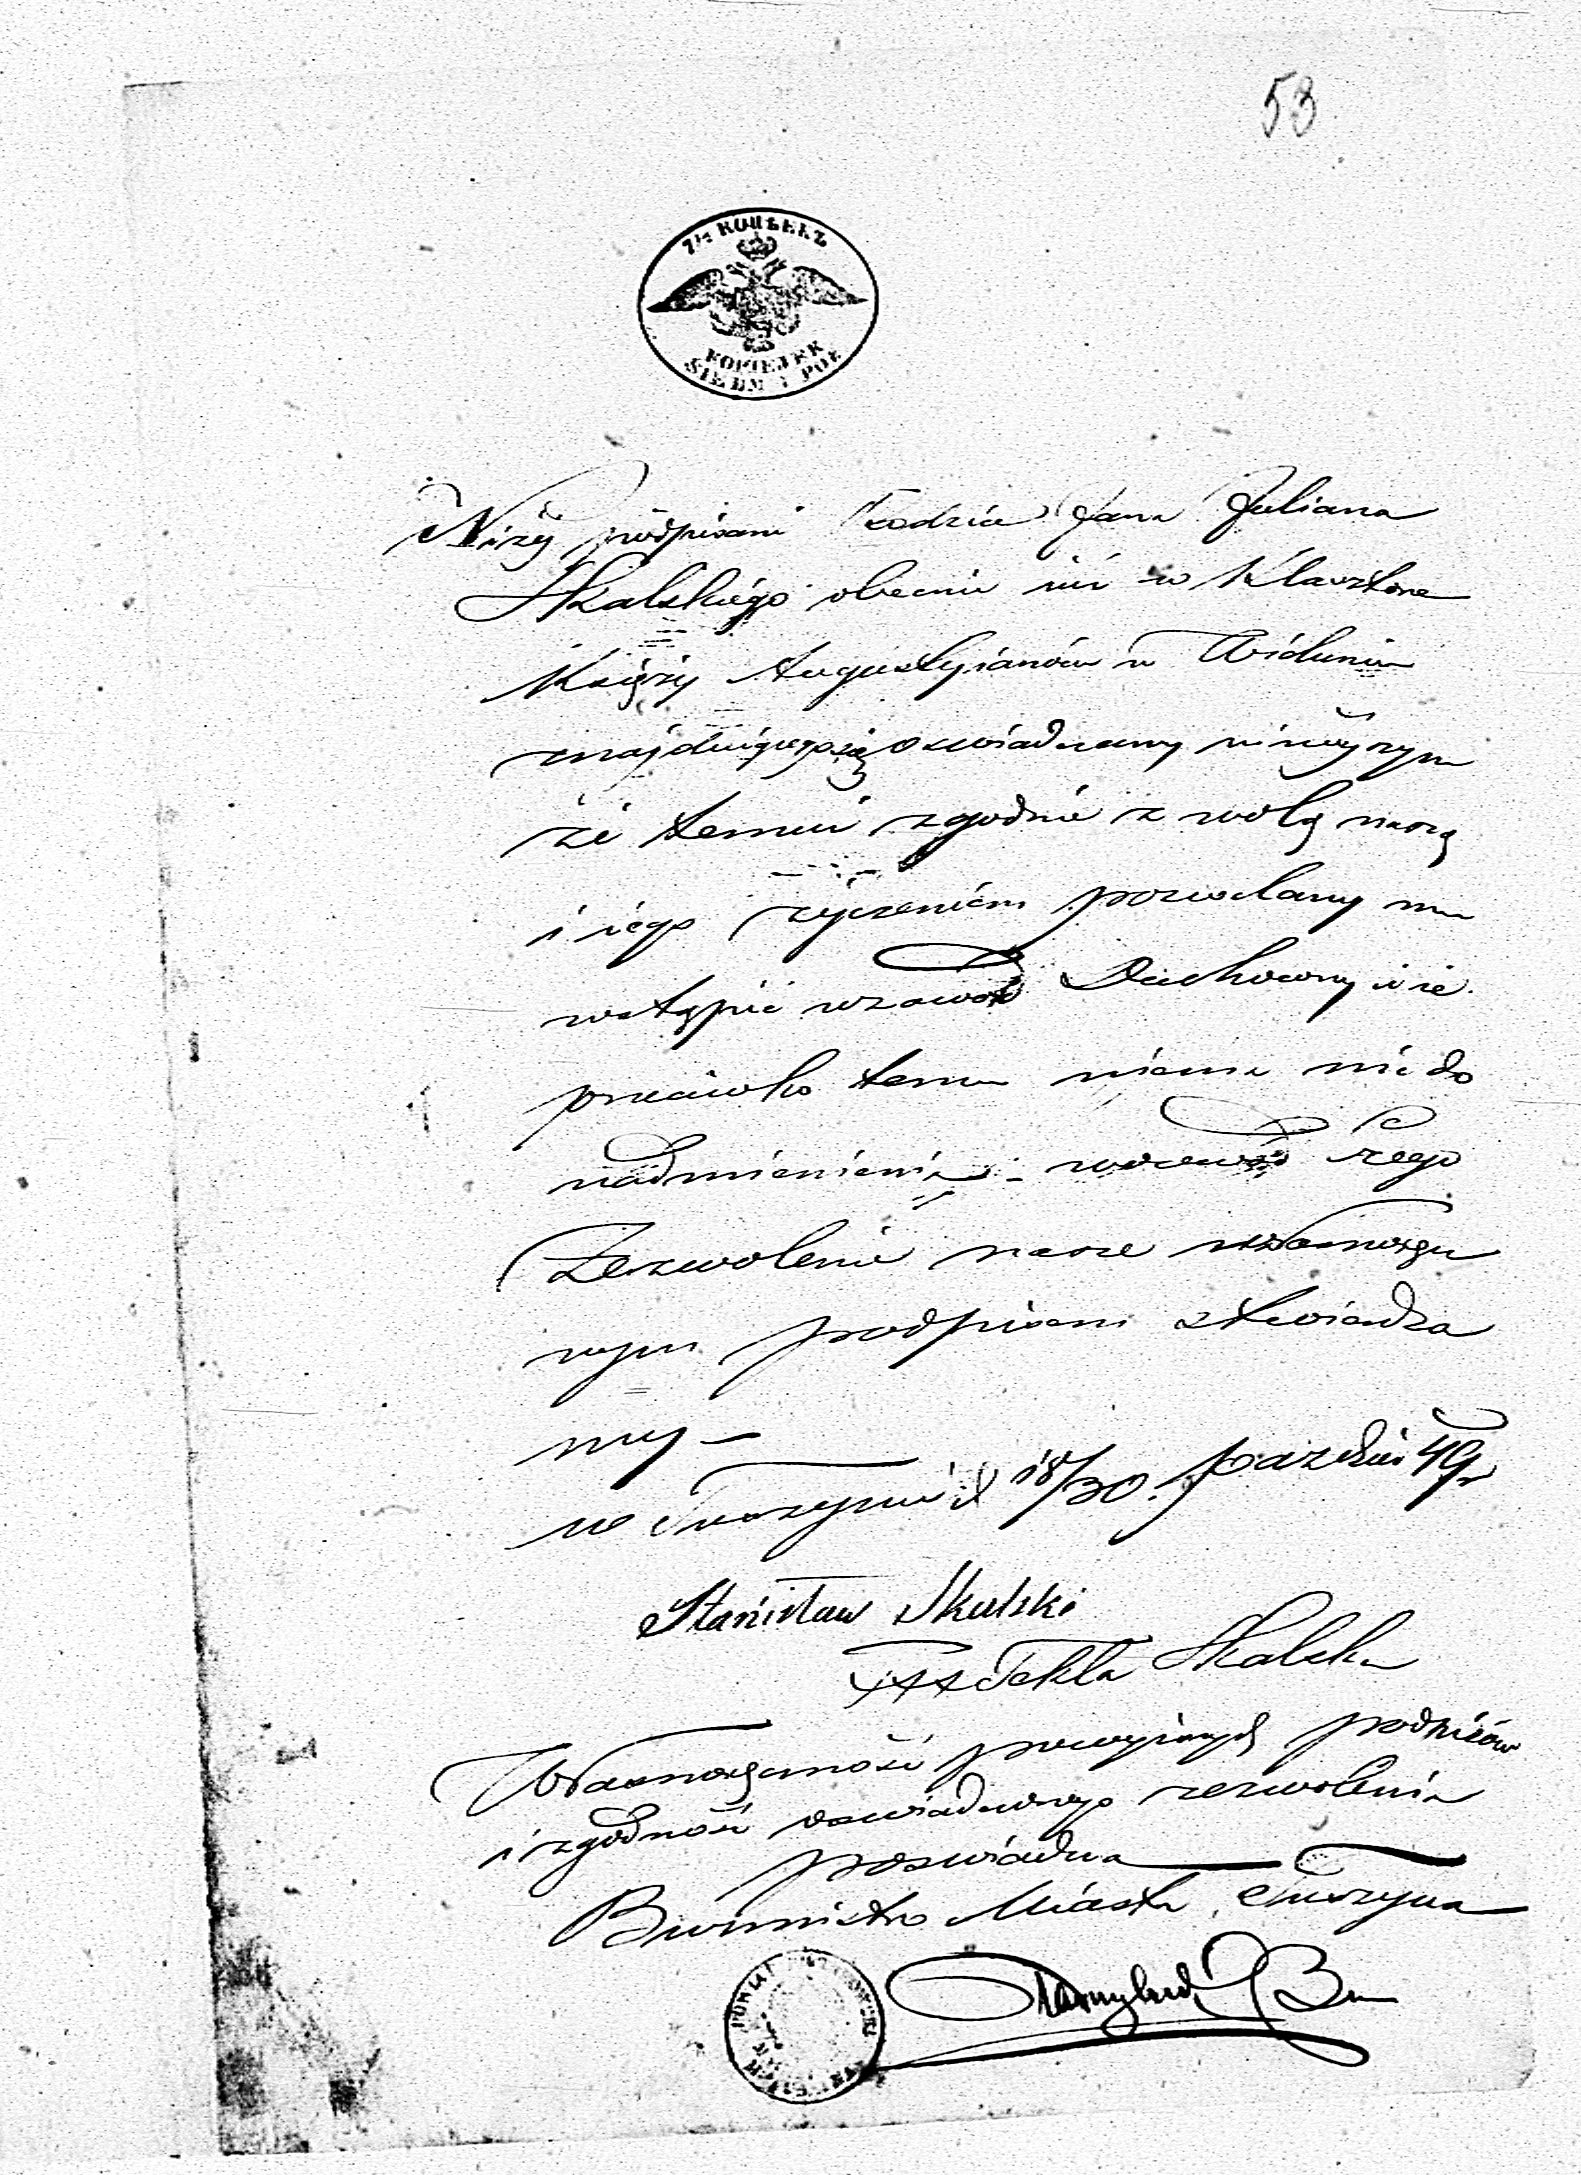 53
7½ КОПѢЕКЪ
KOPIEJEK
SIEDM I PÓŁ
Niżéj podpisani Rodzice Jana Juliana
Skalskiego obecnie iuż w Klasztorze
Księży Augustyianów w Wieluniu
znajduiącego się oswiadczamy ninieyszym
że temuż zgodnie z wolą naszą
i iego życzeniem pozwalamy mu
wstąpić w zawód Duchowny i że
przeciwko temu niema nic do
nadmienienia; w dowód czego
Zezwolenie nasze własnoręcz
nym podpisem stwierdza
my –
w Tuszynie d 18/30 pazdzier 49 r
Stanisław Skalski
+++ Tekla Skalska
Własnoręczność powyższych podpisów
i zgodność oswiadczonego zezwolenia
poswiadcza
Burmistrz Miasta Tuszyna
POWIAT